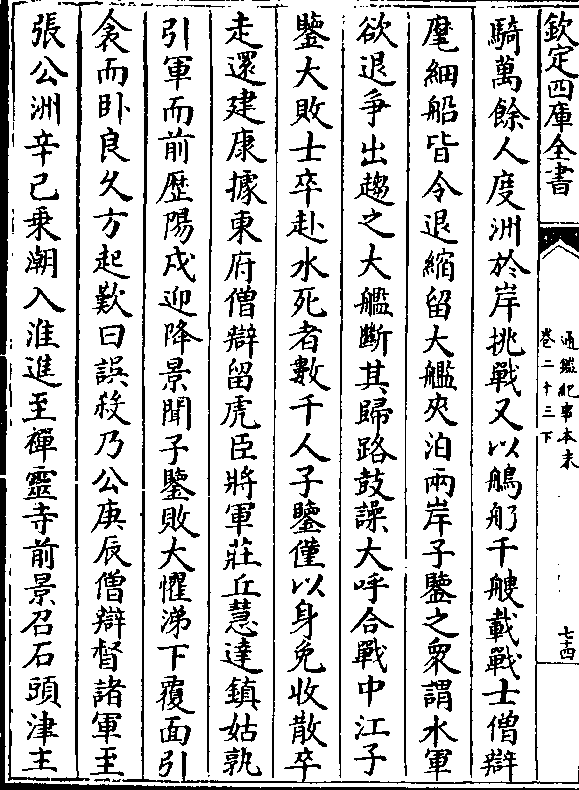 欽定四庫全書
通鑑紀事本末
卷二十三下
七十四
騎萬餘人度洲於岸挑戰又以鵃䑠千艘載戰士僧辯
麾細船皆令退縮留大艦夾泊兩岸子鑒之衆謂水軍
欲退爭出趨之大艦斷其歸路鼓譟大呼合戰中江子
鑒大敗士卒赴水死者數千人子鑒僅以身免收散卒
走還建康據東府僧辯留虎臣將軍莊丘慧達鎮姑孰
引軍而前歷陽戍迎降景聞子鑒敗大懼涕下覆面引
衾而卧良久方起歎曰誤殺乃公庚辰僧辯督諸軍至
張公洲辛己乗潮入淮進至禪靈寺前景召石頭津主